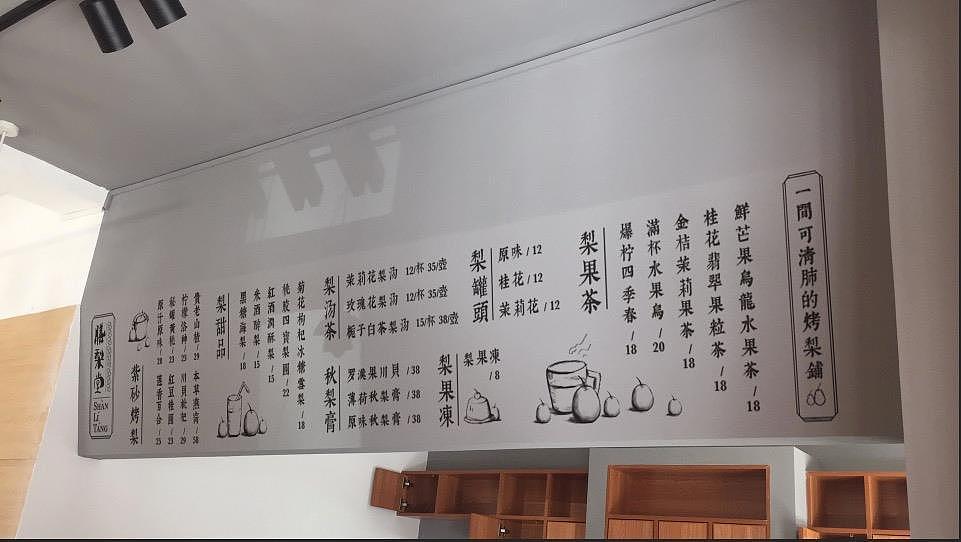 一間可清肺的烤梨鋪
鮮芒果烏龍水果茶/18
桂花翡翠果粒茶/18
金桔茉莉果茶/18
滿杯水果烏/20
爆柠四季春/18
梨果茶
梨罐頭
原味/12
桂花/12
茉莉花/12
梨果凍
梨果凍
/8
梨汤茶
茉莉花梨汤 12/杯 35/壺
玫瑰花梨汤 12/杯 35/壺
栀子白茶梨汤 15/杯 38/壺
秋梨膏
罗漢果川貝/38
薄荷秋梨膏/38
原味秋梨膏/38
菊花枸杞冰糖雪梨/18
桃胶四寶梨圆/22
紅酒潤酥梨/15
米酒醉梨/15
黑糖海梨/18
梨甜品
紫砂烤梨
貴老山楂/29
柠檬洛神/23
秘醸黄桃/23
原汁原味/28
本草燕窩/58
川貝枇杷/29
紅豆桂圆/23
蓮香百合/25
膳梨堂
SHAN
LI
TANG